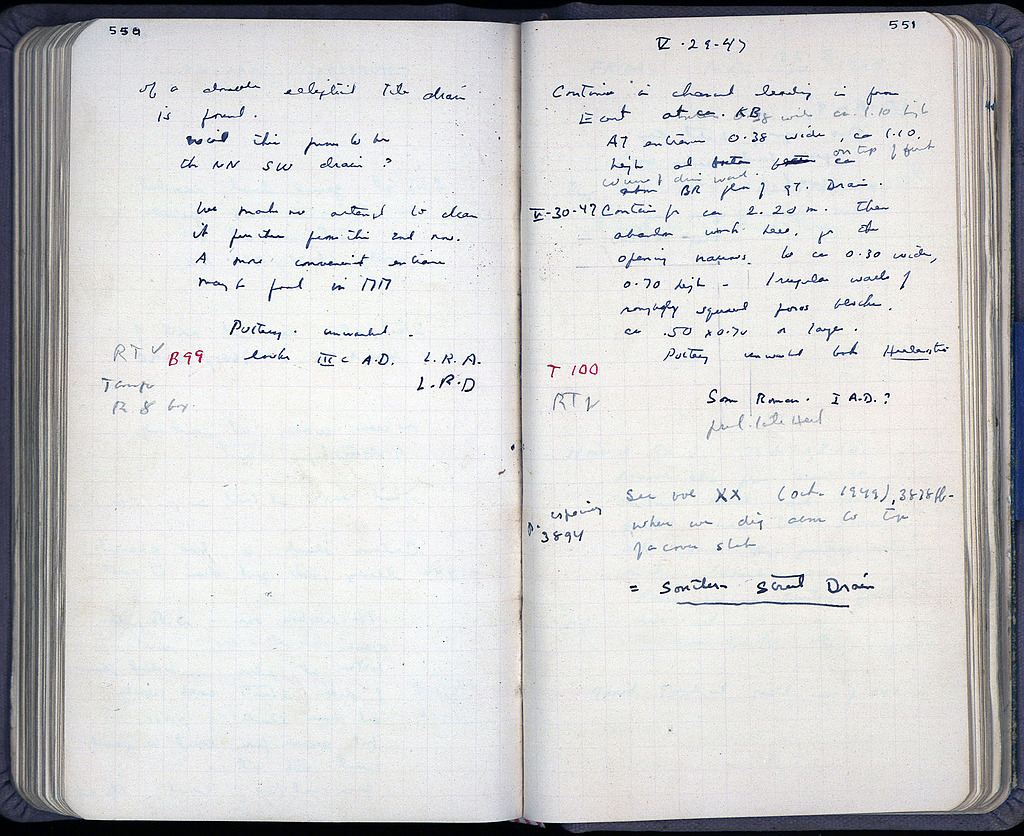 550
of a double elliptical tile drain
is found.
Could this prove to be
the NN SW drain?
We make no attempt to clean
it further from this end now.
A more convenient entrance
may be found in MM
Pottery. unwashed.
RT √ B99 looks III c A.D. L.R.A.
L.R.D
R 8
551
V-29-47
Continue in channel leading in from
E at ca. KB
0.38 wide ca 1.10 high
AT entrance 0.38 wide, ca 1.10
high
on top of
BR of GT. Drain.
V-30-47 Continue for ca 2.20 m. then
abandon work here, for the
opening narrows to ca 0.30 wide,
0.70 high - Irregular walls of
roughly squared poros blocks.
ca .50 x 0.70 or larger.
Pottery unwashed looks Hellenistic
T 100
RT √
Some Roman. I A.D.?
prob. late Hell
See vol XX (Oct. 1949), 3878ff-
especially
p. 3894
where we dig down to top
of a cover slab
= Southern Street Drain